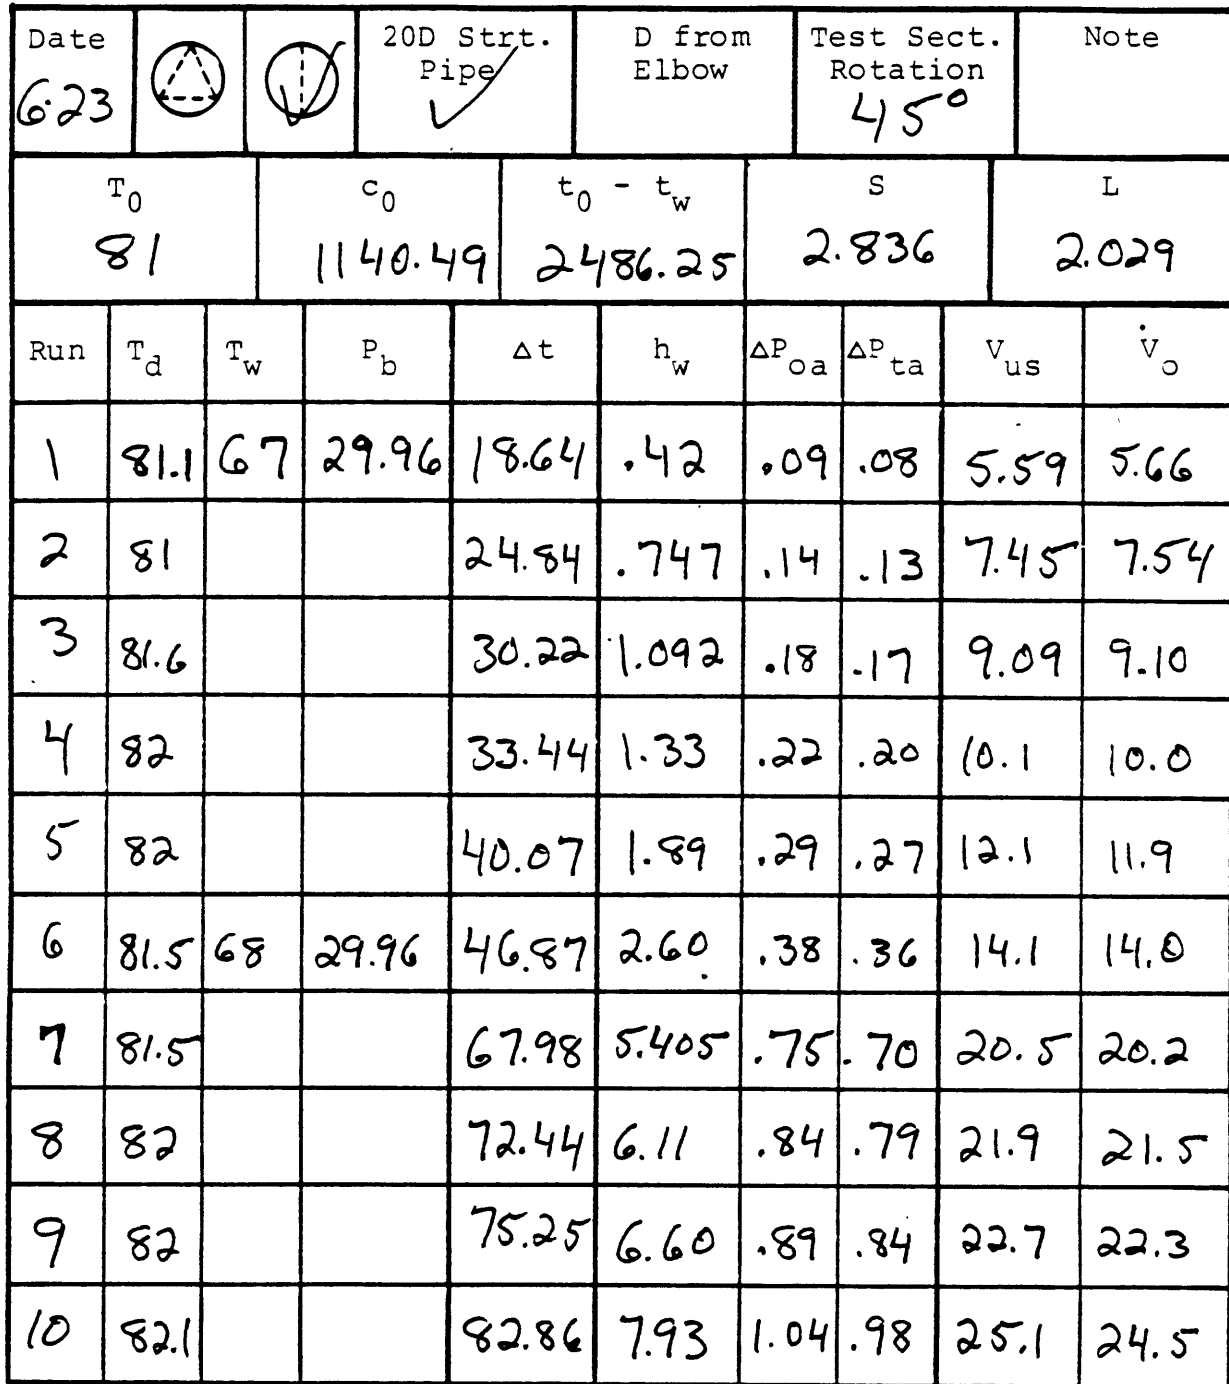 Date 20D Strt. D from Test Sect. Note
Pipe Elbow Rotation
6·23 ✓ ✓ 45°
T₀ c₀ t₀ - t_w S L
81 1140.49 2486.25 2.836 2.029
Run T_d T_w P_b Δt h_w ΔP_oa ΔP_ta V_us V̇_o
1 81.1 67 29.96 18.64 .42 .09 .08 5.59 5.66
2 81 24.84 .747 .14 .13 7.45 7.54
3 81.6 30.22 1.092 .18 .17 9.09 9.10
4 82 33.44 1.33 .22 .20 10.1 10.0
5 82 40.07 1.89 .29 .27 12.1 11.9
6 81.5 68 29.96 46.87 2.60 .38 .36 14.1 14.0
7 81.5 67.98 5.405 .75 .70 20.5 20.2
8 82 72.44 6.11 .84 .79 21.9 21.5
9 82 75.25 6.60 .89 .84 22.7 22.3
10 82.1 82.86 7.93 1.04 .98 25.1 24.5